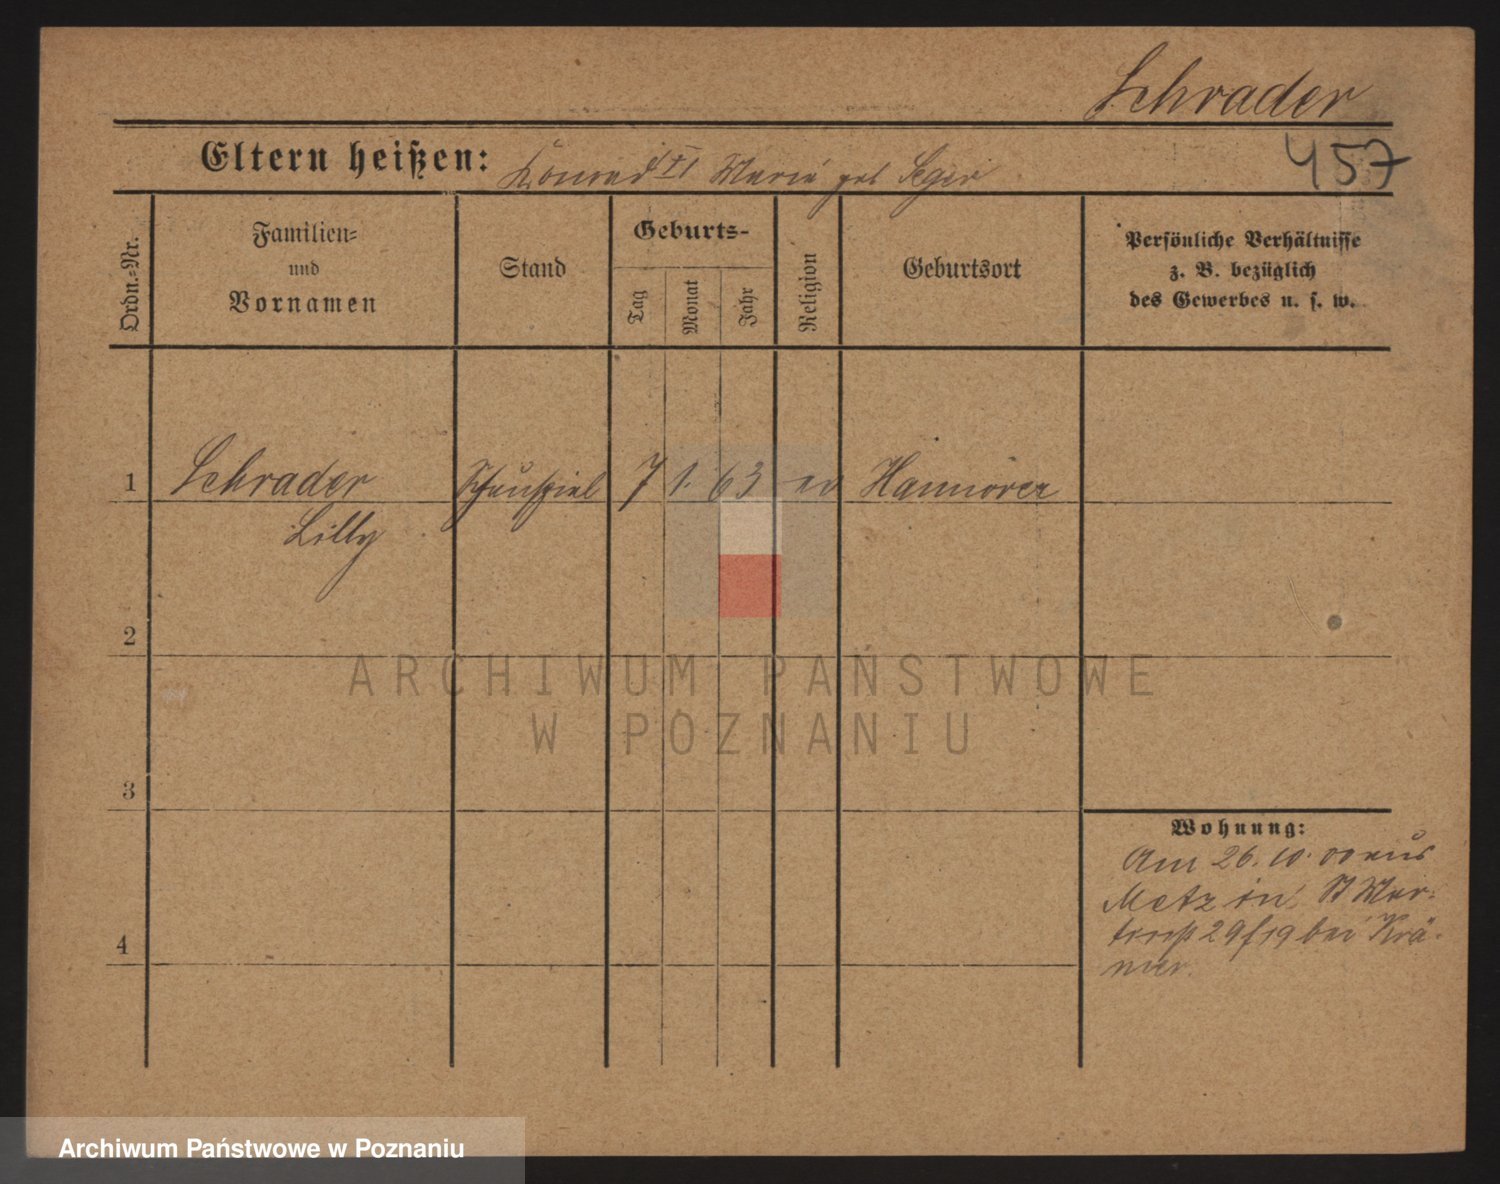 Schrader
457
Eltern heißen: Konrad u Marie geb Seger
Ordn.-Nr.
Familien-
und
Vornamen
Stand
Geburts-
Tag
Monat
Jahr
Religion
Geburtsort
Persönliche Verhältnisse
z. B. bezüglich
des Gewerbes u. s. w.
1 Schrader Schauspiel 7 1. 63 ev Hannover
Lilly
2
3
4
Wohnung:
Am 26. 10. 00 aus
Metz in St Mar-
29 bei Krä-
mer.
ARCHIWUM PAŃSTWOWE
W POZNANIU
Archiwum Państwowe w Poznaniu